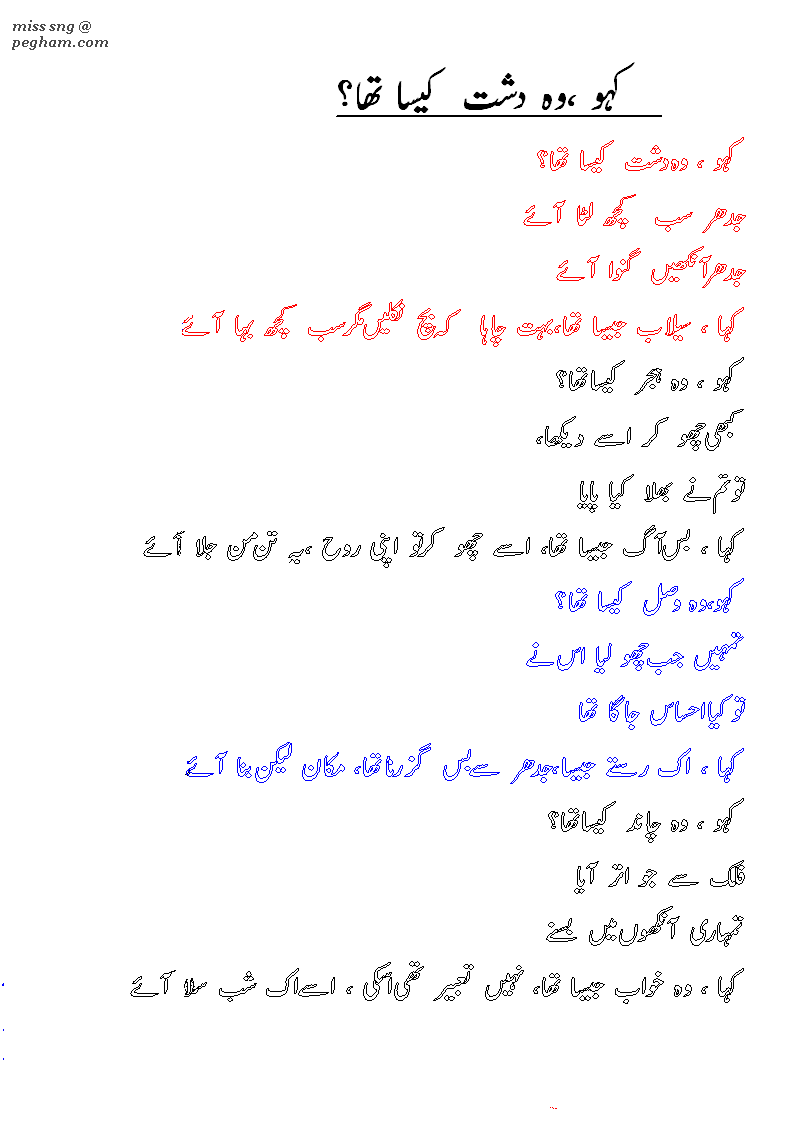 miss sng @
pegham.com
کہو ،وہ دشت کیسا تھا؟
کہو ، وہ دشت کیسا تھا؟
جدھر سب کچھ لٹا آئے
جدھر آنکھیں گنوا آئے
کہا ، سیلاب جیسا تھا، بہت چاہا کہ بچ نکلیں مگر سب کچھ بہا آئے
کہو ، وہ ہجر کیسا تھا؟
کبھی چھو کر اسے دیکھا،
تو تم نے بھلا کیا پایا
کہا ، بس آگ جیسا تھا، اسے چھو کر تو اپنی روح ،یہ تن من جلا آئے
کہو،وہ وصل کیسا تھا؟
تمہیں جب چھو لیا اس نے
تو کیا احساس جاگا تھا
کہا ، اک رستے جیسا،جدھر سے بس گزرنا تھا، مکان لیکن بنا آئے
کہو ، وہ چاند کیسا تھا؟
فلک سے جو اتر آیا
تمہاری آنکھوں میں بسنے
کہا ، وہ خواب جیسا تھا، نہیں تعبیر تھی اسکی ، اسے اک شب سلا آئے